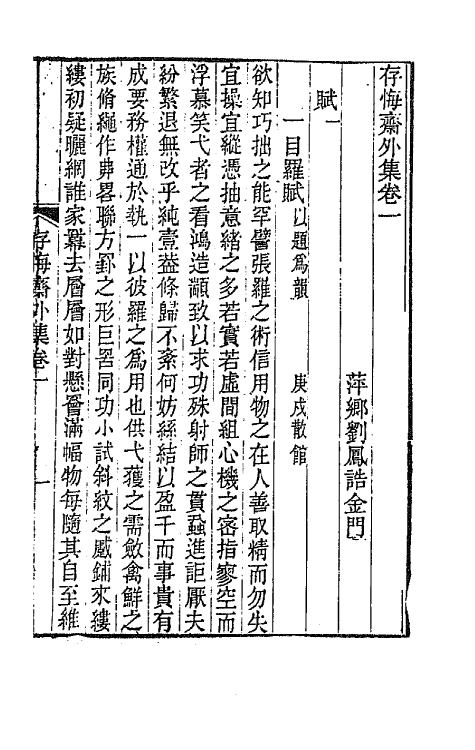 存悔齋外集卷一
萍鄉劉鳳誥金門
賦一
一目羅賦以題爲韻 庚戌散館
欲知巧拙之能罕譬張羅之術信用物之在人善取精而勿失
宜操宜縱憑抽意緒之多若實若虛間組心機之密指寥空而
浮慕笑弋者之看鴻造顓致以求功殊射師之貫蝨進詎厭夫
紛繁退無改乎純壹葢條歸不紊何妨絲結以盈千而事貴有
成要務權通於執一以彼羅之爲用也供弋獲之需斂禽鮮之
族脩繩作弗畧聯方罫之形巨罟同功小試斜紋之蹙鋪來縷
縷初疑曬網誰家羃去層層如對懸罾滿幅物每隨其自至維
存悔齋外集卷一
一